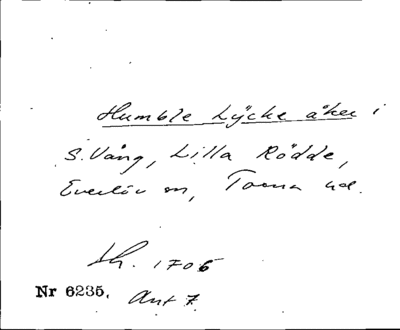 Humble Lÿcke åker i
S. Vång, Lilla Rödde,
Everlöv sn, Torna hd.
Lh. 1706
Nr 6235. Akt 7